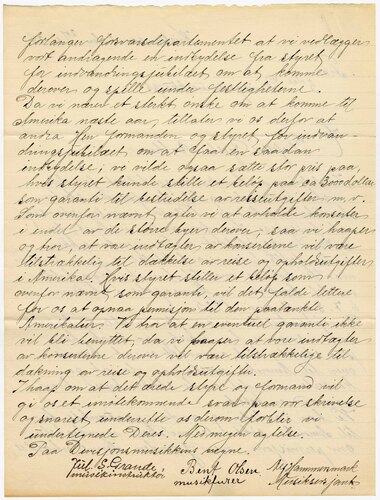 forlanger forsvarsdepartementet at vi vedlægger
vort andragende en indbydelse fra styret
for indvandringsjubilæet om at komme
derover og spille under festlighetene.
Da vi nærer et sterkt ønske om at komme til
Amerika næste aar, tillater vi os derfor at
andra Hr. formanden og styret for indvan-
dringsjubilæet, om at faa en saadan
indbydelse; vi vilde ogsaa sætte stor pris paa,
hvis styret kunde stille et beløp paa ca 3000 dollars
som garanti til bestridelse av reiseutgifter m. v.
Som ovenfor nævnt, agter vi at avholde konserter
i endel av de større byer derover, saa vi haaper
og tror, at vore indtægter av konserterne vil være
tilstrækkelig til dækkelse av reise og opholdsutgifter
i Amerika. Hvis styret stiller et beløp som
ovenfor nævnt, som garanti, vil det falde lettere
for os at opnaa permisjon til den paatænkte
Amerikatur. Vi tror at en eventuel garanti ikke
vil bli benyttet, da vi haaper at vore indtægter
av konserterne derover vil være tilstrækkelige til
dækning av reise og opholdsutgifter.
I haap om at det ærede styre og formand vil
gi os et imøtekommende svar paa vor skrivelse
og snarest, underrette os derom, forblir vi
undertegnede Deres. Med megen agtelse.
Paa Divisjonsmusikkens vegne.
Juel S. Grande Bernt Olsen Hammenmark
musikinstruktør musikfurer Musikersjant